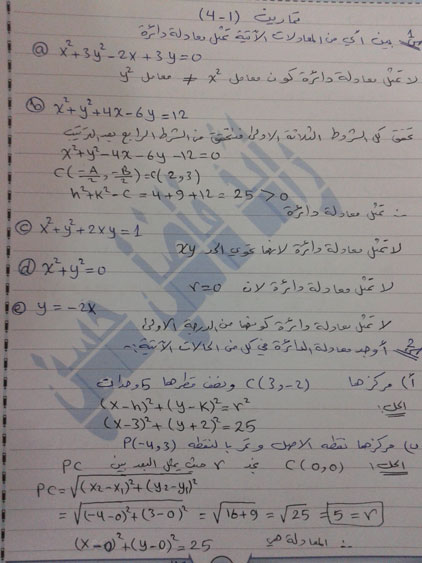 تمارين (4-1)
س1 بين أي من المعادلات الآتية تمثل معادلة دائرة
ⓐ x²+3y²-2x+3y=0
لا تمثل معادلة دائرة كون معامل x² ≠ معامل y²
ⓑ x²+y²+4x-6y=12
تحقق كل الشروط الثلاثة الاولى فنتحقق من الشرط الرابع بعد الترتيب
x²+y²-4x-6y-12=0
C(-A/2, -B/2)=C(2,3)
h²+k²-C=4+9+12=25>0
∴ تمثل معادلة دائرة
ⓒ x²+y²+2xy=1
لا تمثل معادلة دائرة لانها تحوي الحد xy
ⓓ x²+y²=0
لا تمثل معادلة دائرة لان r=0
ⓔ y=-2x
لا تمثل معادلة دائرة كونها من الدرجة الاولى
س2 أوجد معادلة الدائرة في كل من الحالات الآتية:-
أ) مركزها C(3,-2) ونصف قطرها 5 وحدات
الحل: (x-h)²+(y-k)²=r²
(x-3)²+(y+2)²=25
ب) مركزها نقطة الاصل وتمر بالنقطة P(-4,3)
الحل: C(0,0) نجد r حيث يمثل البعد بين PC
PC=√(x₂-x₁)²+(y₂-y₁)²
=√(-4-0)²+(3-0)² =√16+9 =√25 =5=r
∴ المعادلة هي (x-0)²+(y-0)²=25